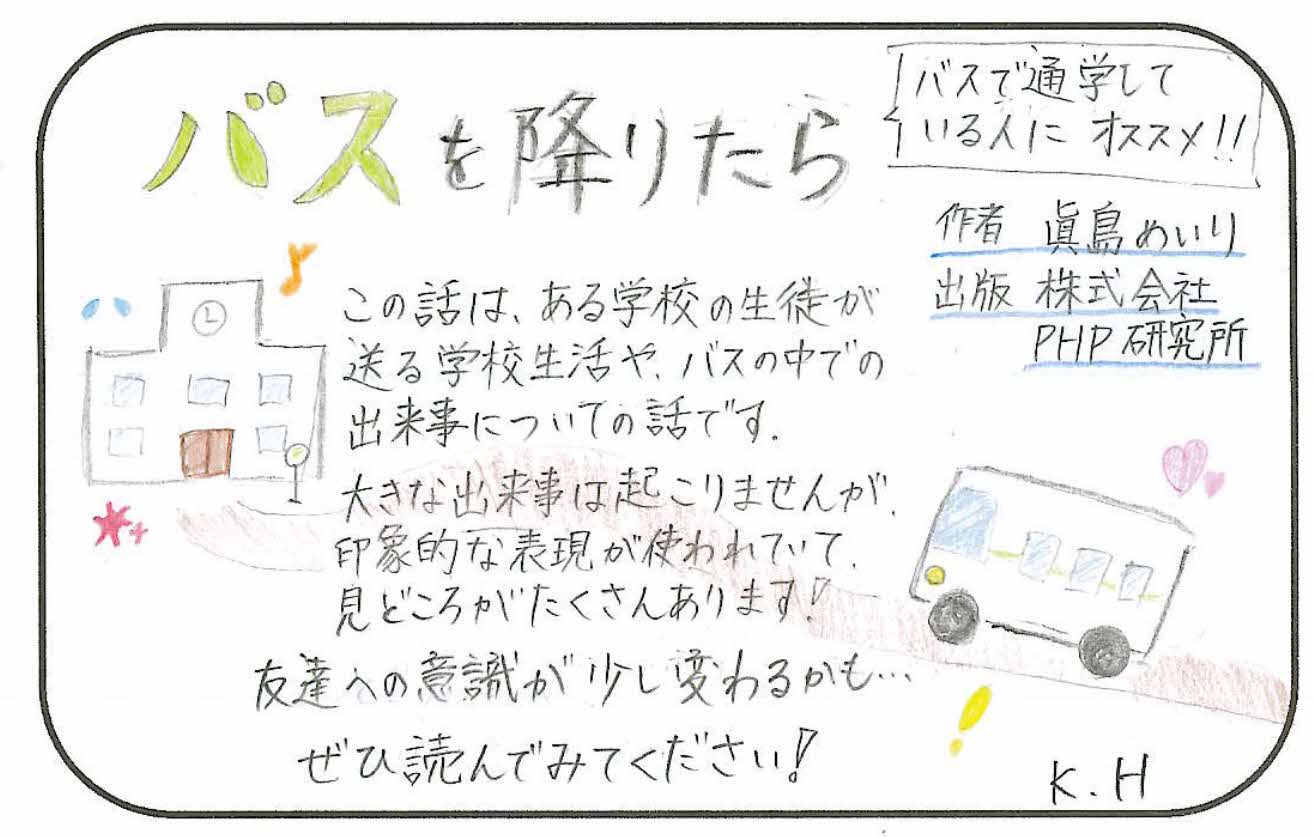 バスを降りたら
バスで通学して
いる人に オススメ!!
作者 眞島めいり
出版 株式会社
PHP研究所
この話は、ある学校の生徒が
送る学校生活や、バスの中での
出来事についての話です.
大きな出来事は起こりませんが、
印象的な表現が使われていて、
見どころがたくさんあります!
友達への意識が少し変わるかも…
ぜひ読んでみてください!
K.H